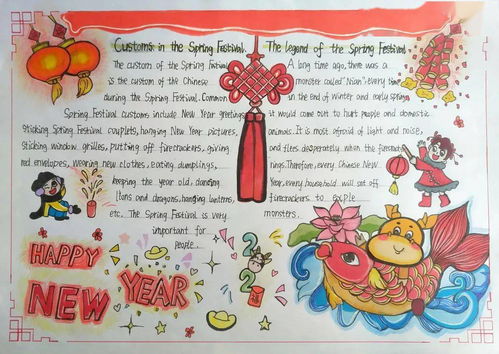 Customs in the Spring Festival
The custom of the Spring Festival
is the custom of the Chinese
during the Spring Festival. Common
Spring Festival customs include New Year greetings
Sticking Spring Festival couplets, hanging New Year pictures,
Sticking window grilles, putting off firecrackers, giving
red envelopes, wearing new clothes, eating dumplings,
keeping the year old, dancing
lions and dragons, hanging lanterns,
etc. The Spring Festival is very
important for
people.
The legend of the Spring Festival
A long time ago, there was a
monster called "Nian". every time
in the end of winter and early springs
it would come out to hurt people and domestic
animals. It is most afraid of light and noise,
and flees desperately when the firecracker
rings. Therefore, every Chinese New
Year, every household will set off
firecrackers to
monsters.
HAPPY
NEW
YEAR
2
2
福